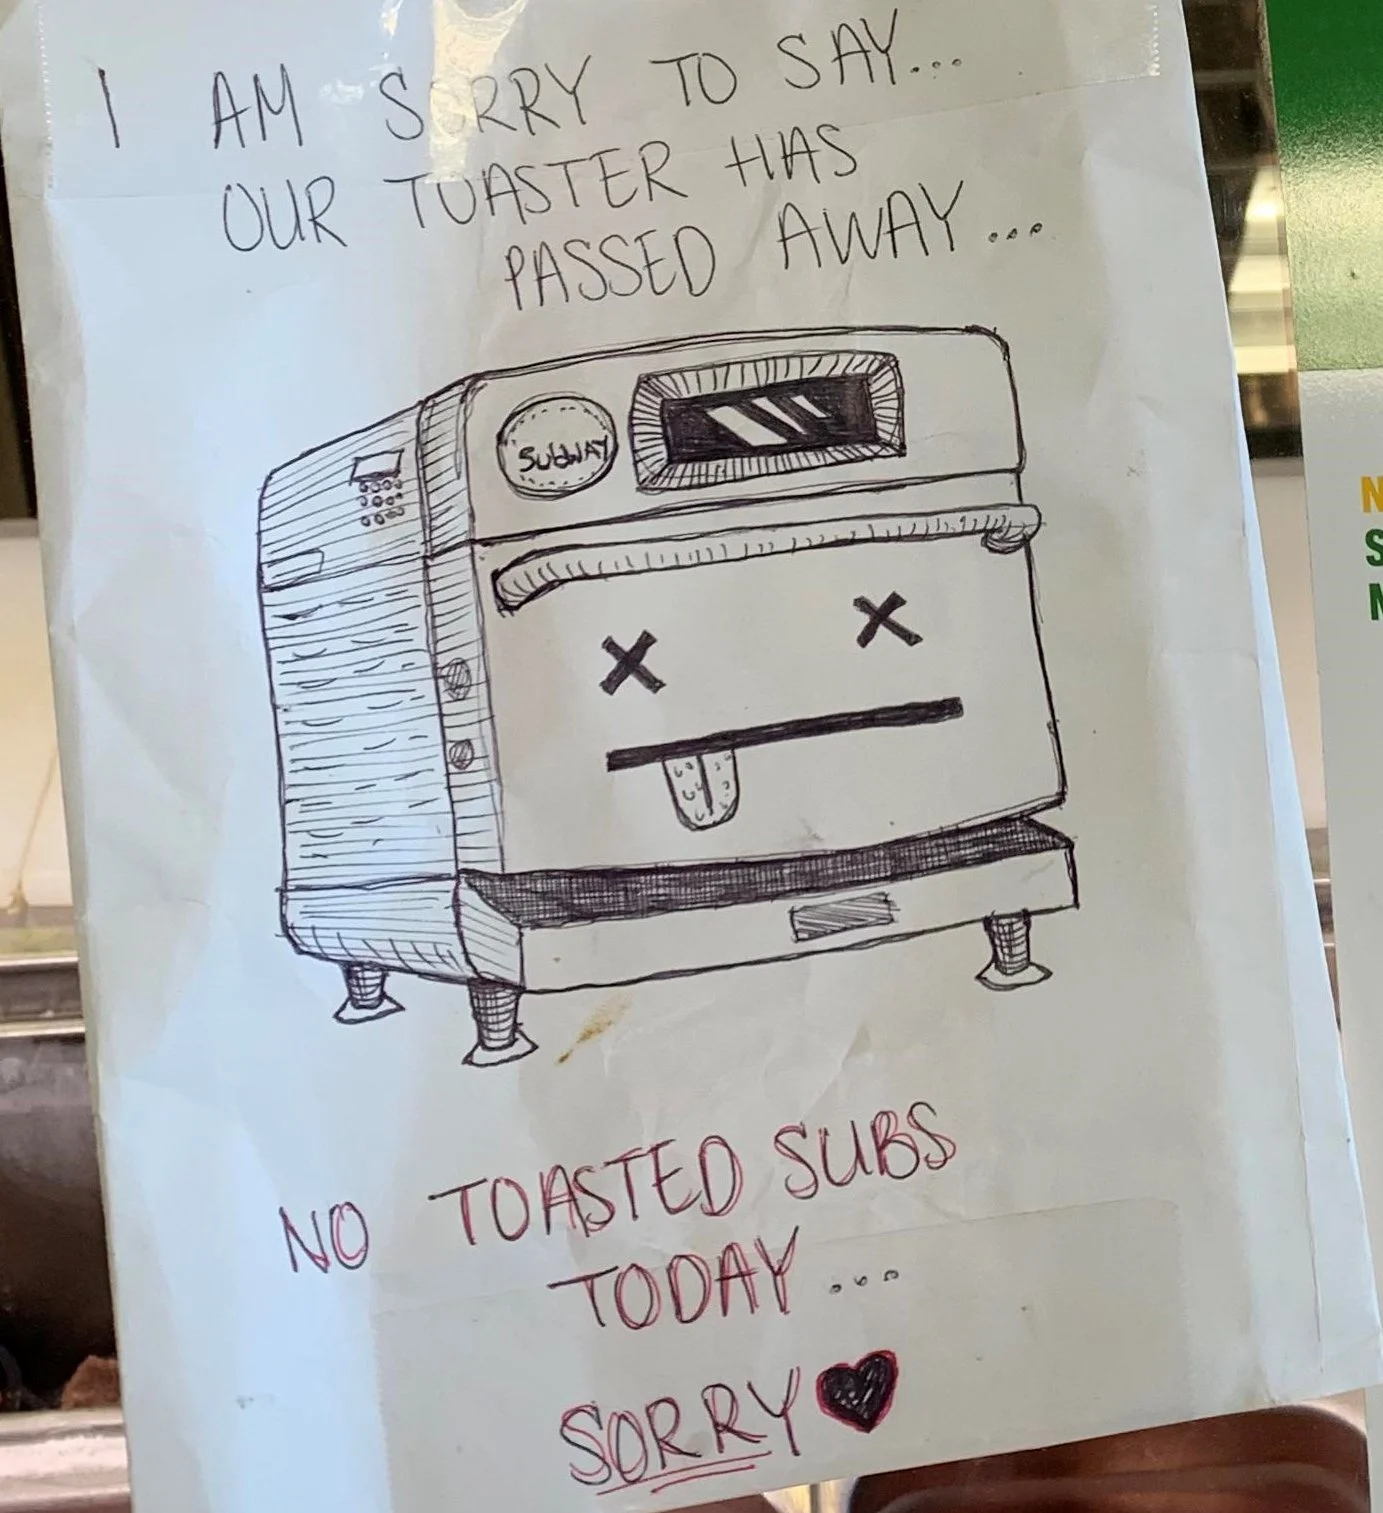 I AM SORRY TO SAY...
OUR TOASTER HAS
PASSED AWAY...
SUBWAY
NO TOASTED SUBS
TODAY...
SORRY
N
S
N